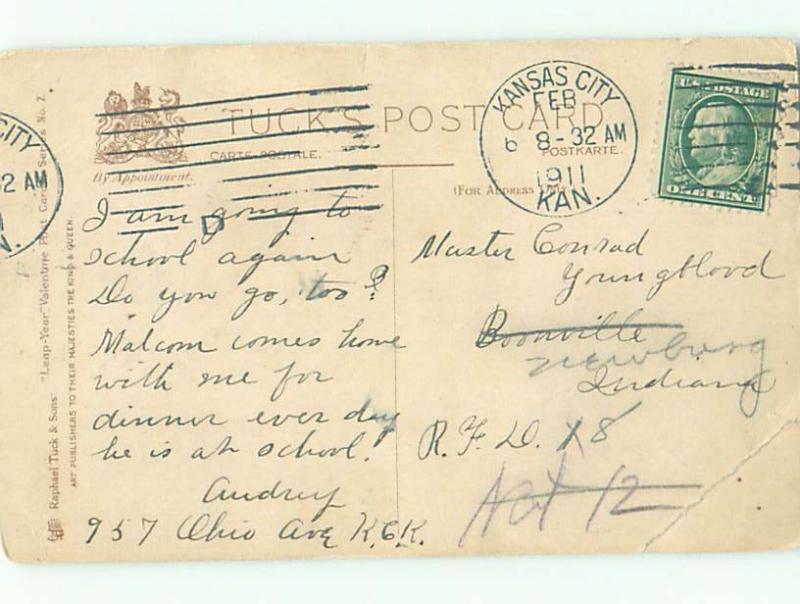 TUCK'S POST CARD
CARTE POSTALE.
POSTKARTE.
By Appointment.
(FOR ADDRESS ONLY)
KANSAS CITY
FEB
6 8-32 AM
1911
KAN.
U.S. POSTAGE
ONE CENT
CITY
32 AM
N.
D
I am going to
school again
Do you go, too?
Malcom comes home
with me for
dinner ever day
he is at school.
Audrey
957 Ohio Ave K.C.K.
Master Conrad
Youngblood
Boonville
Newburg
Indiana
R.F.D. 8
Not 12
Raphael Tuck & Sons' "Leap-Year" Valentine Post Card Series No. 7.
ART PUBLISHERS TO THEIR MAJESTIES THE KING & QUEEN.